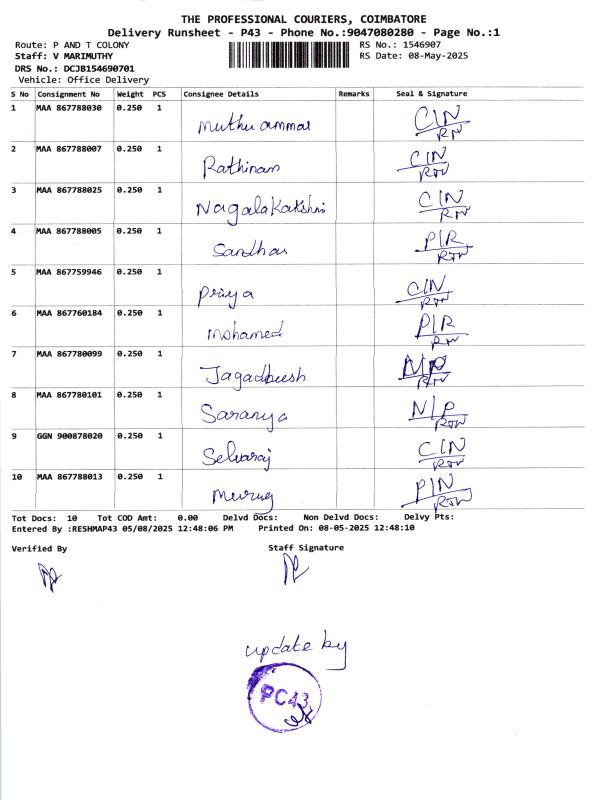 THE PROFESSIONAL COURIERS, COIMBATORE
Delivery Runsheet - P43 - Phone No.:9047080280 - Page No.:1
Route: P AND T COLONY RS No.: 1546907
Staff: V MARIMUTHY RS Date: 08-May-2025
DRS No.: DCJB154690701
Vehicle: Office Delivery
S No Consignment No Weight PCS Consignee Details Remarks Seal & Signature
1 MAA 867788030 0.250 1 Muthu ammal C/N
RTN
2 MAA 867788007 0.250 1 Rathinam C/N
RTN
3 MAA 867788025 0.250 1 Nagalakakshmi C/N
RTN
4 MAA 867788005 0.250 1 Sandhas P/R
RTN
5 MAA 867759946 0.250 1 Priya C/N
RTN
6 MAA 867760184 0.250 1 Mohamed P/R
RTN
7 MAA 867780099 0.250 1 Jagadheesh N/P
RTN
8 MAA 867780101 0.250 1 Saranya N/P
RTN
9 GGN 900878020 0.250 1 Selvaraj C/N
RTN
10 MAA 867788013 0.250 1 Murug P/N
RTN
Tot Docs: 10 Tot COD Amt: 0.00 Delvd Docs: Non Delvd Docs: Delvy Pts:
Entered By :RESHMAP43 05/08/2025 12:48:06 PM Printed On: 08-05-2025 12:48:10
Verified By Staff Signature
update by
PC43